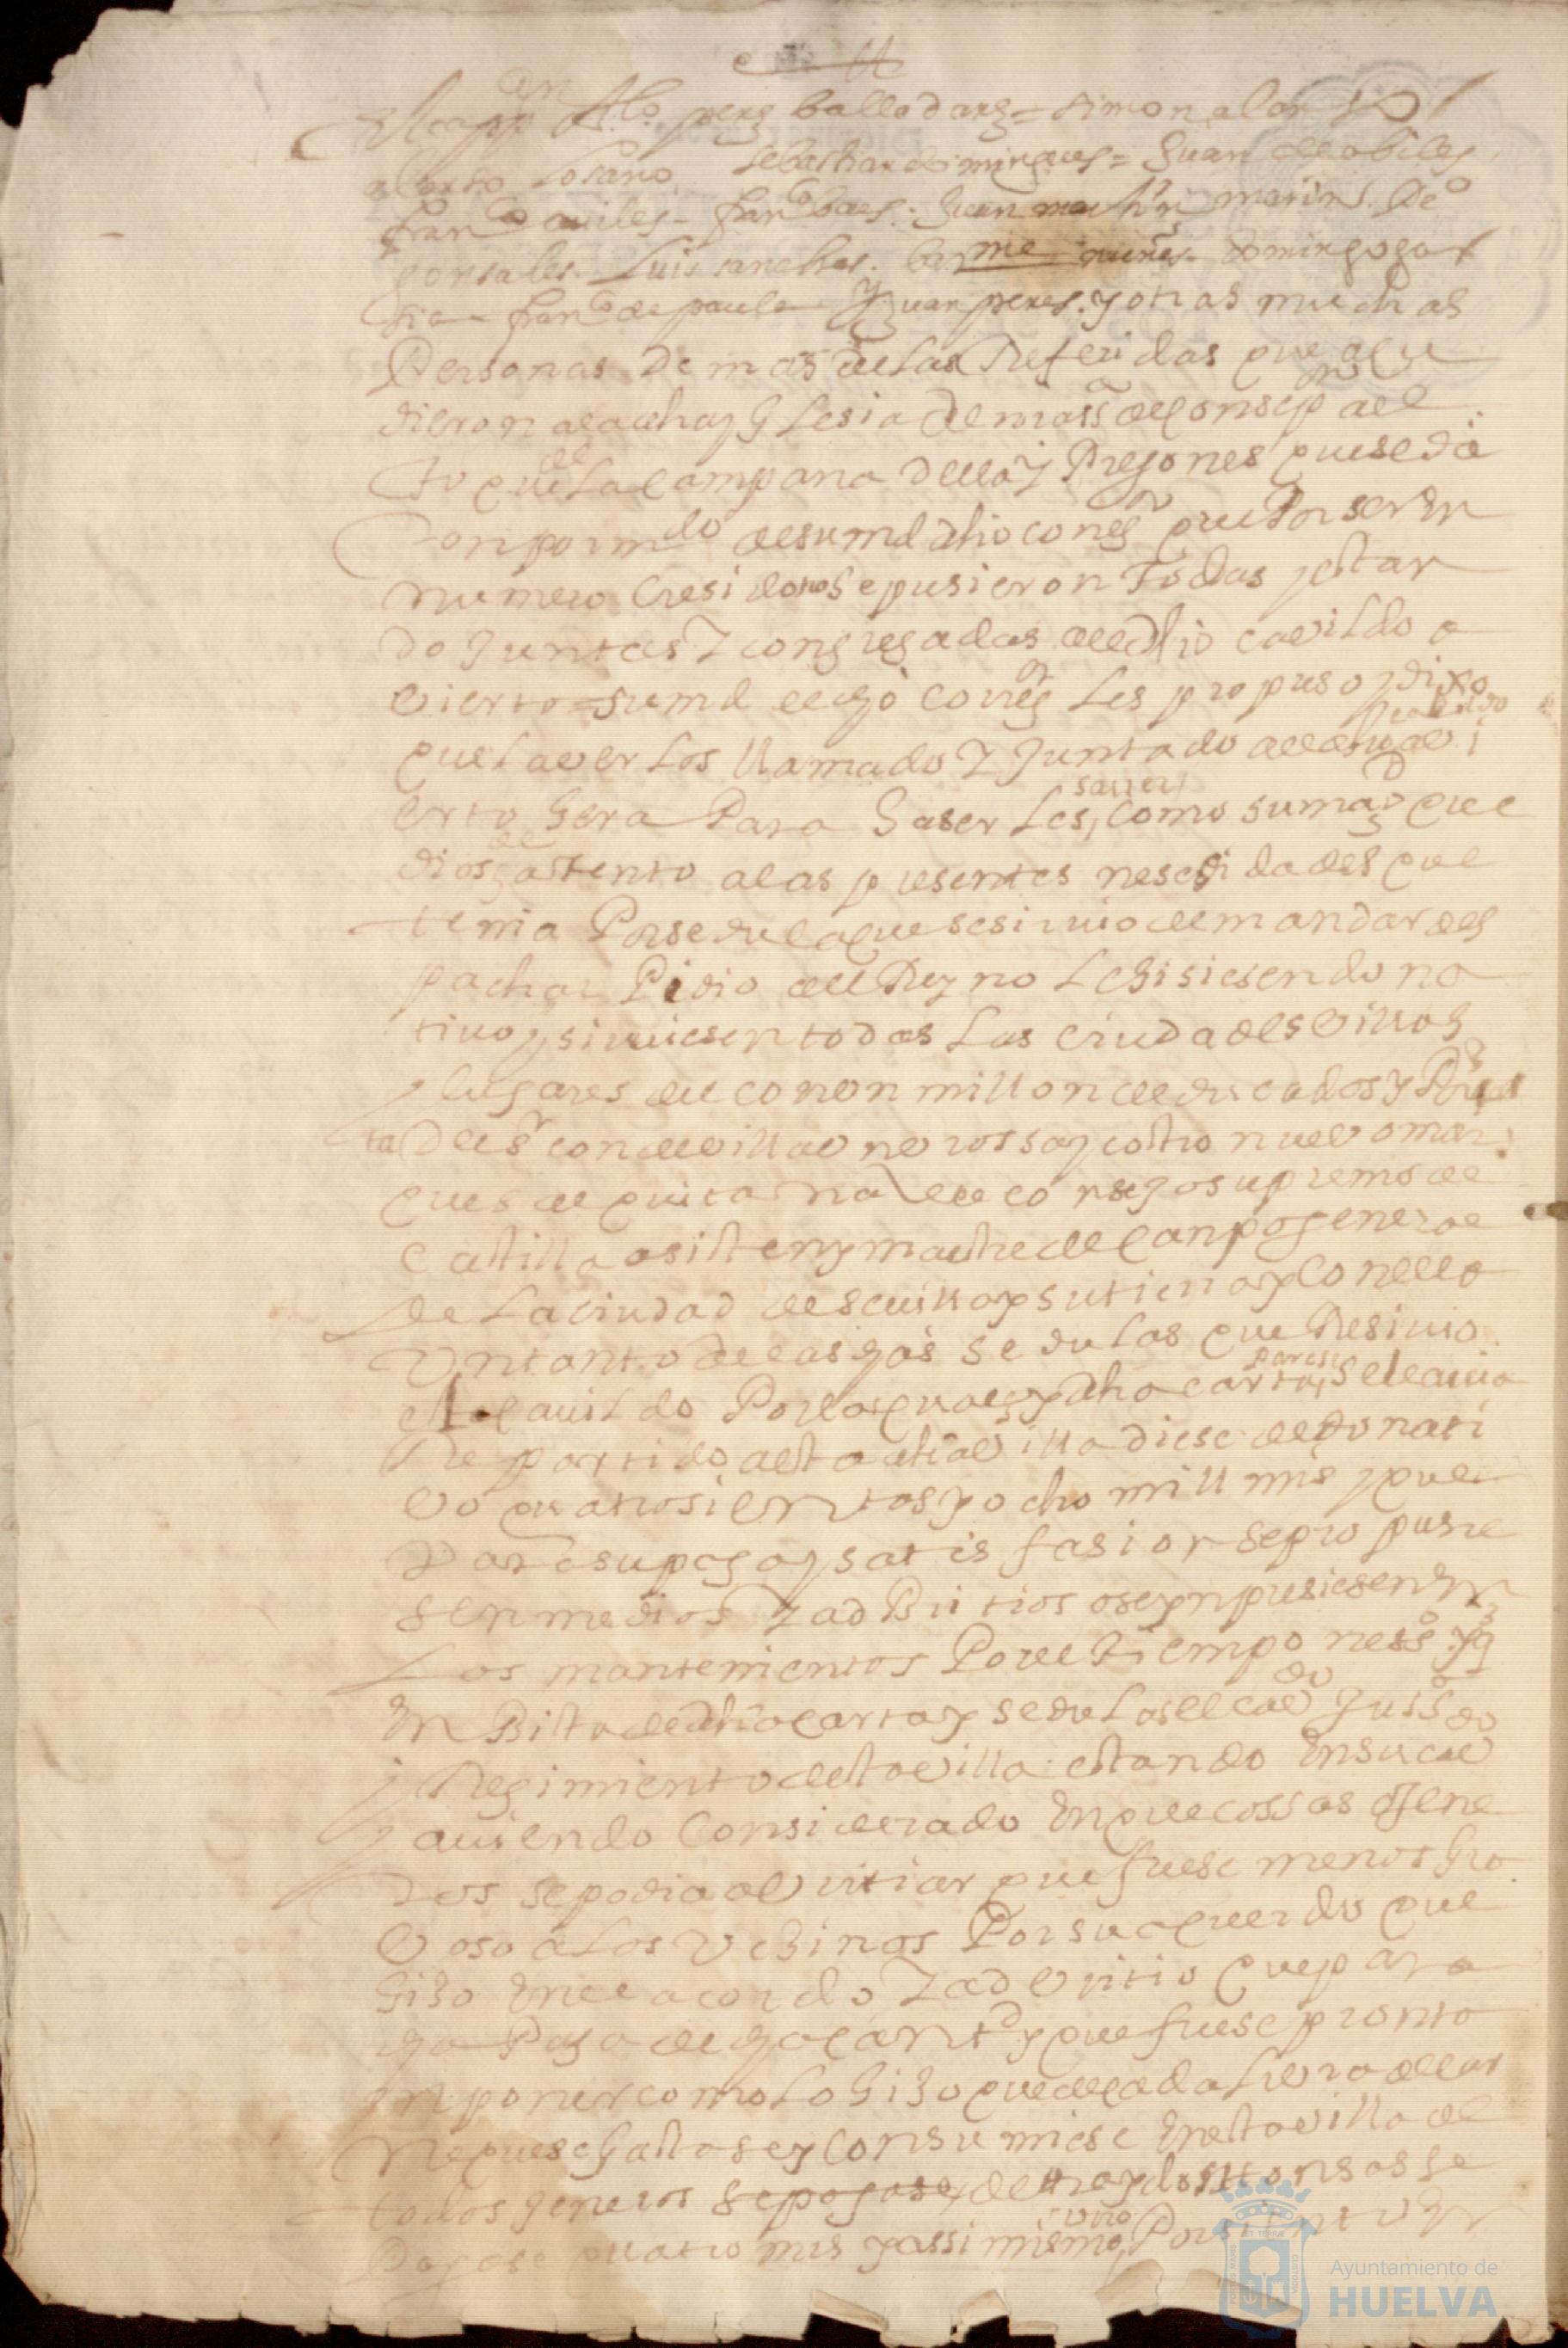 El capn Alo perez balladarez = simon alon
alberto losano sebastian dominguez = Juan de abiles
franco auiles - franco baes. Juan martin marin
gonsales. Luis sanches. nuñes. domingo gar
sia - franco de paula Juan peres. y otras muchas
Personas demas de las Referidas que acu
dieron a la dha yglesia demas del consejo al
toque de la campana della y Pregones que se dio
con por mdo de su md dho corregor que Por ser En
numero Cresido se pusieron Todas y estan
do Juntas Y congregadas al dho cauildo a
vierto = su md el dho corregor Les propuso y dixo
que laver los llamado Y Juntado al dho cauildo avi
erto Hera Para Haser Les, saver como su magd que
dios ge atento a las presentes nesesidades que
tenia Por sedula que se siruio de mandar des
pachar Pidio al Reyno le hisiesen dona
tiuo y siruiesen todas las ciudades villas
y lugares del con un millon de ducados y Por car
ta del sr conde de villaunbrossa y castronuevo mar
ques de quintana del consejo supremo de
Castilla asistente y maestre de Canpo general
de la ciudad de seuilla y su tierra y con ella
Un tanto de las dhas sedulas que Resiuio
este cauildo Por las quales y dha carta, parese se le auia
Repartido a esta dha villa diese de donati
vo quatrosientos y ocho mill mrs y que
Para su paga y satisfasion se propusie
sen medios Y adbitrios o se ynpusiesen En
Los mantenimientos Por el tiempo nesso. y q
En Bista de dha carta y sedulas el cavdo Jussa
y Regimiento desta villa estando En su cavdo
y auiendo Considerado En que cossas y gene
ros se podia alvitriar que fuese menos gra
voso a los vezinos Por su aquerdo que
hizo En el acordo Y adbitrio que para
la Paga de dha cantd y que fuese pronta
ynponer como lo hizo que de cada libra de car
ne que se gastase y consumiese En esta villa de
todos generos se pagase, de tres y dos onsas se
Pagase quatro mrs y assi mismo, Por
Ayuntamiento de
HUELVA